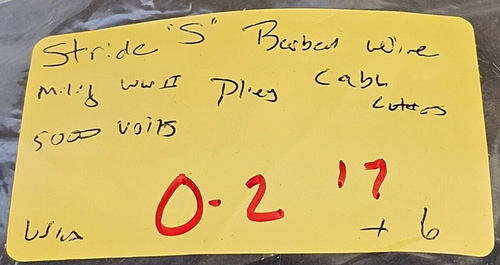 Stride "S" Barbed wire
WWII Pliers Cable
5000 Volts
0-2 17
USA + 6